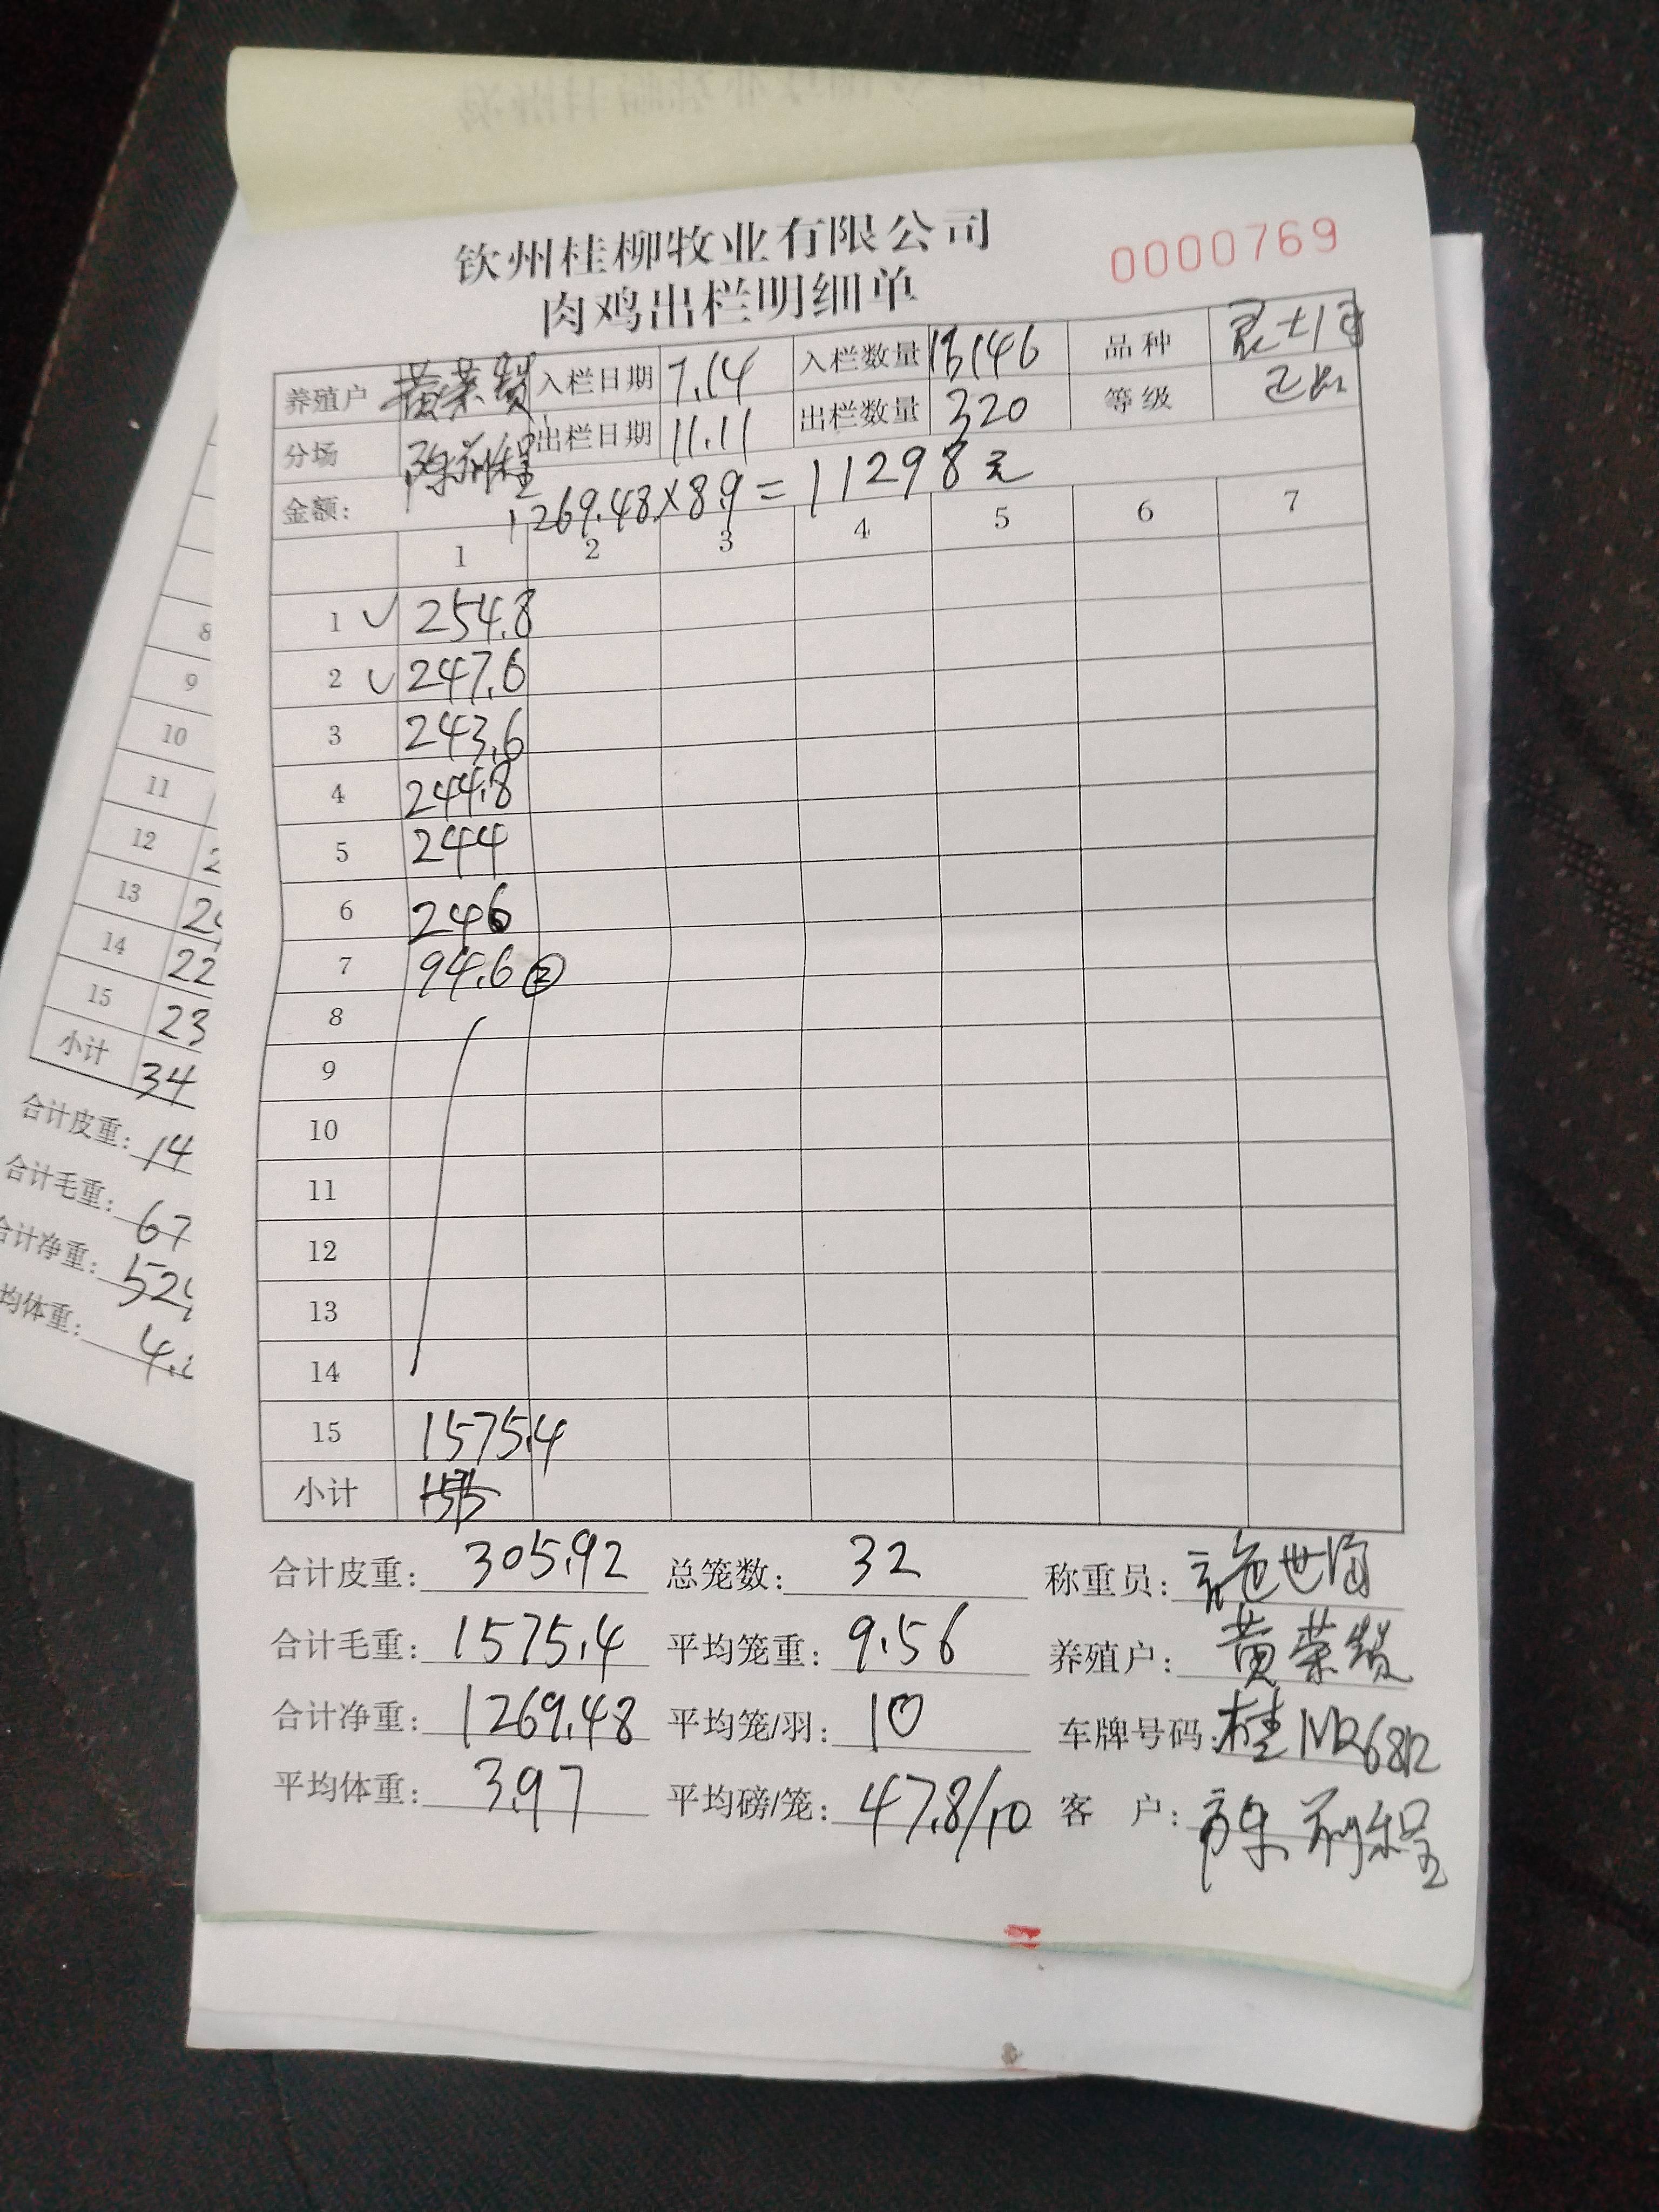 钦州桂柳牧业有限公司
肉鸡出栏明细单
0000769
养殖户 黄荣贤 入栏日期 7.14 入栏数量 13146 品种
分场 陈前程 出栏日期 11.11 出栏数量 320 等级 正品
金额: 1269.48×8.9=11298元
1 2 3 4 5 6 7
1 254.8
2 247.6
3 243.6
4 244.8
5 244
6 246
7 94.6 ②
8
9
10
11
12
13
14
15 1575.4
小计
合计皮重: 305.92 总笼数: 32 称重员: 施世海
合计毛重: 1575.4 平均笼重: 9.56 养殖户: 黄荣贤
合计净重: 1269.48 平均笼/羽: 10 车牌号码: 桂
平均体重: 3.97 平均磅/笼: 47.8/10 客户: 陈前程
8
9
10
11
12
13
14 22
15 23
小计 34
合计皮重: 14
合计毛重: 67
合计净重: 52
均体重: 4.